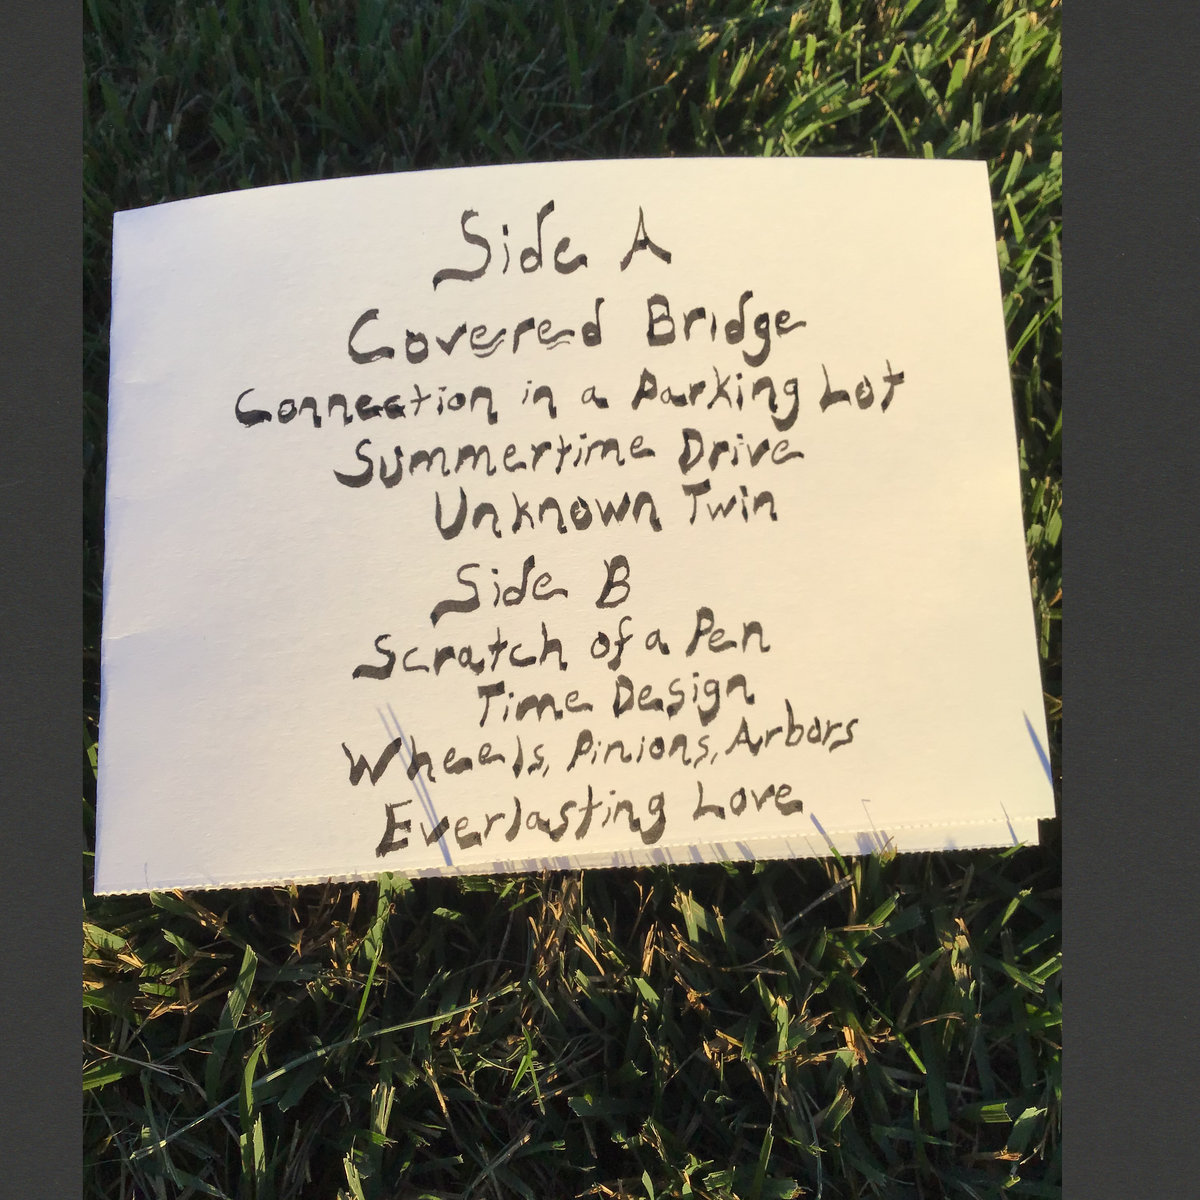 Side A
Covered Bridge
Connection in a Parking Lot
Summertime Drive
Unknown Twin
Side B
Scratch of a Pen
Time Design
Wheels, Pinions, Arbors
Everlasting Love